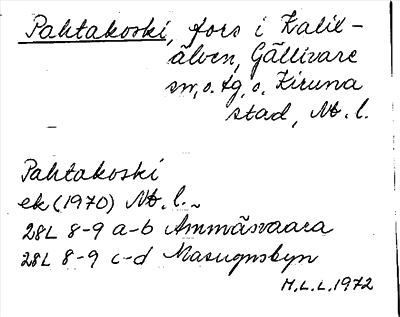 Pahtakoski, fors i Kalix-
älven, Gällivare
sn, o. tg, o. Kiruna
stad, Nb. l.
Pahtakoski
ek (1970) Nb. l.
28L 8-9 a-b Ammäsvaara
28L 8-9 c-d Masugnsbyn
M.L.L. 1972